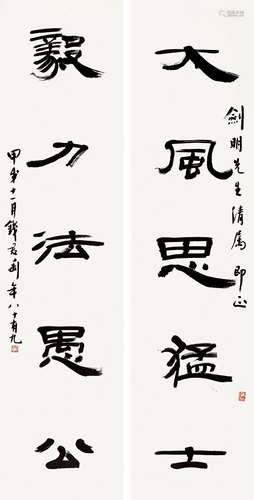 大風思猛士
劍明先生清屬 即正
毅力法愚公
甲戌十一月錢君匋年八十有九